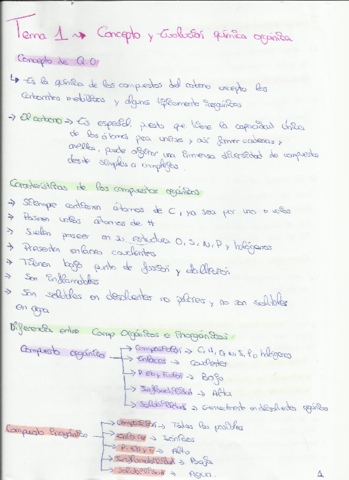 Tema 1 → Concepto y Evolución química orgánica
Concepto de Q.O
↳ Es la química de los compuestos del carbono excepto los
carbonatos metálicos y algunos típicamente inorgánicos
→ El carbono → Es especial puesto que tiene la capacidad única
de los átomos para unirse y así formar cadenas y
anillos. puede originar una inmensa diversidad de compuestos
desde simples a complejos.
Características de los compuestos orgánicos
→ Siempre contienen átomos de C, ya sea por uno o más
→ Poseen varios átomos de H
→ Suelen poseer en su estructura O, S, N, P y halógenos
→ Presentan enlaces covalentes
→ Tienen bajo punto de fusión y ebullición
→ Son inflamables
→ Son solubles en disolventes no polares y no son solubles
en agua
Diferencias entre Comp Orgánicos e Inorgánicos
Compuesto orgánico → Composición → C, H, O, N, S, P, halógenos
→ Enlaces → Covalentes
→ P. Eb y Fusión → Bajo
→ Inflamabilidad → Alta
→ Solubilidad → en disolventes orgánicos
Compuesto Inorgánico → Composición → Todos los posibles
→ Enlace → Iónicos
→ P. eb y F → Alto
→ Inflamabilidad → Baja
→ Solubilidad → Agua.
1